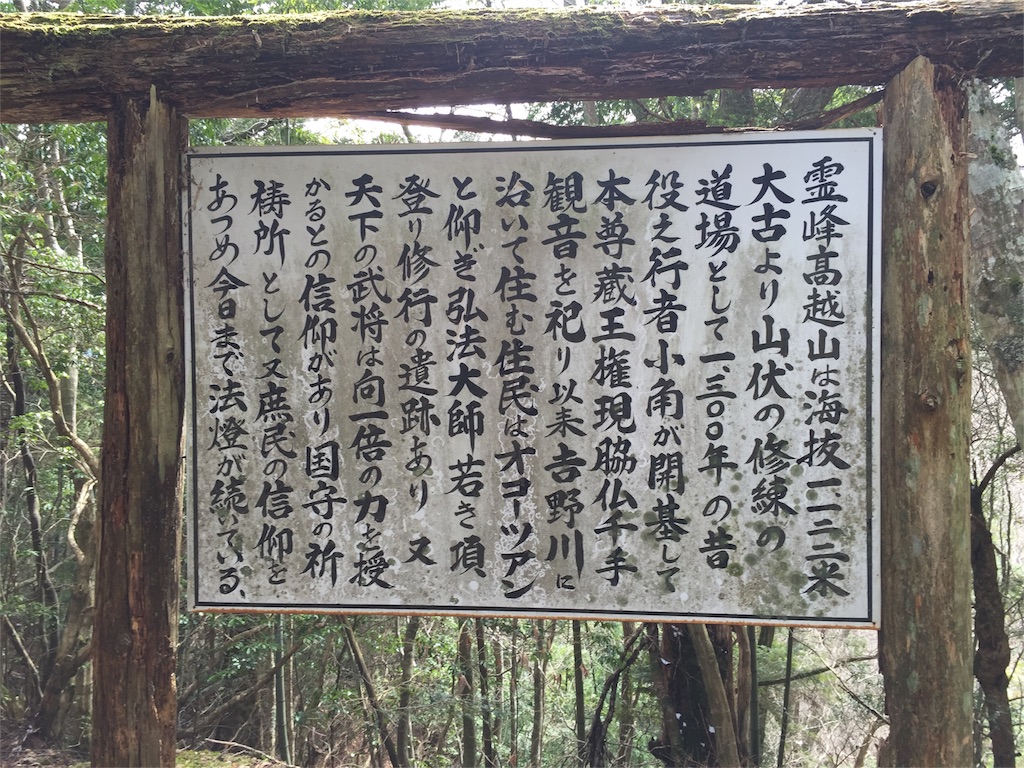 霊峰高越山は海抜一一二二米
大古より山伏の修練の
道場として一、三〇〇年の昔
役之行者小角が開基して
本尊蔵王権現脇仏千手
観音を祀り以来吉野川に
沿いて住む住民はオコーツアン
と仰ぎ弘法大師若き項
登り修行の遺跡あり又
天下の武将は向一倍の力を授
かるとの信仰があり国守の祈
祷所として又庶民の信仰を
あつめ今日まで法燈が続いている、